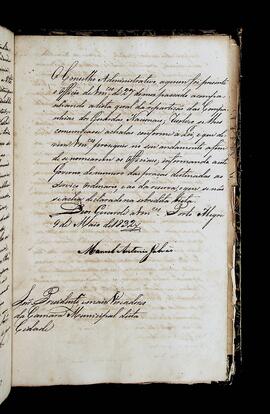 O Conselho Administrativo, a quem foi presente
o Officio de Vm.ces de 27 do mez passado acompa
nhando a lista geral da repartição das Compa
nhias das Guardas Nacionaes,
communicar, achalas conforme a Lei, e que de
vem Vm.ces proseguir no seu andamento a fim
de se nomearem os Officiaes, informando a este
Governo do numero das praças destinadas ao
Serviço ordinario, e ao da reserva, que se não
declarado na sobredita lista.
Deos Guarde a Vm.ces Porto Alegre
9 de Maio de 1832
Manoel Antonio Galvão
Snr.es Presidente e mais Vereadores
da Camara Municipal desta
Cidade